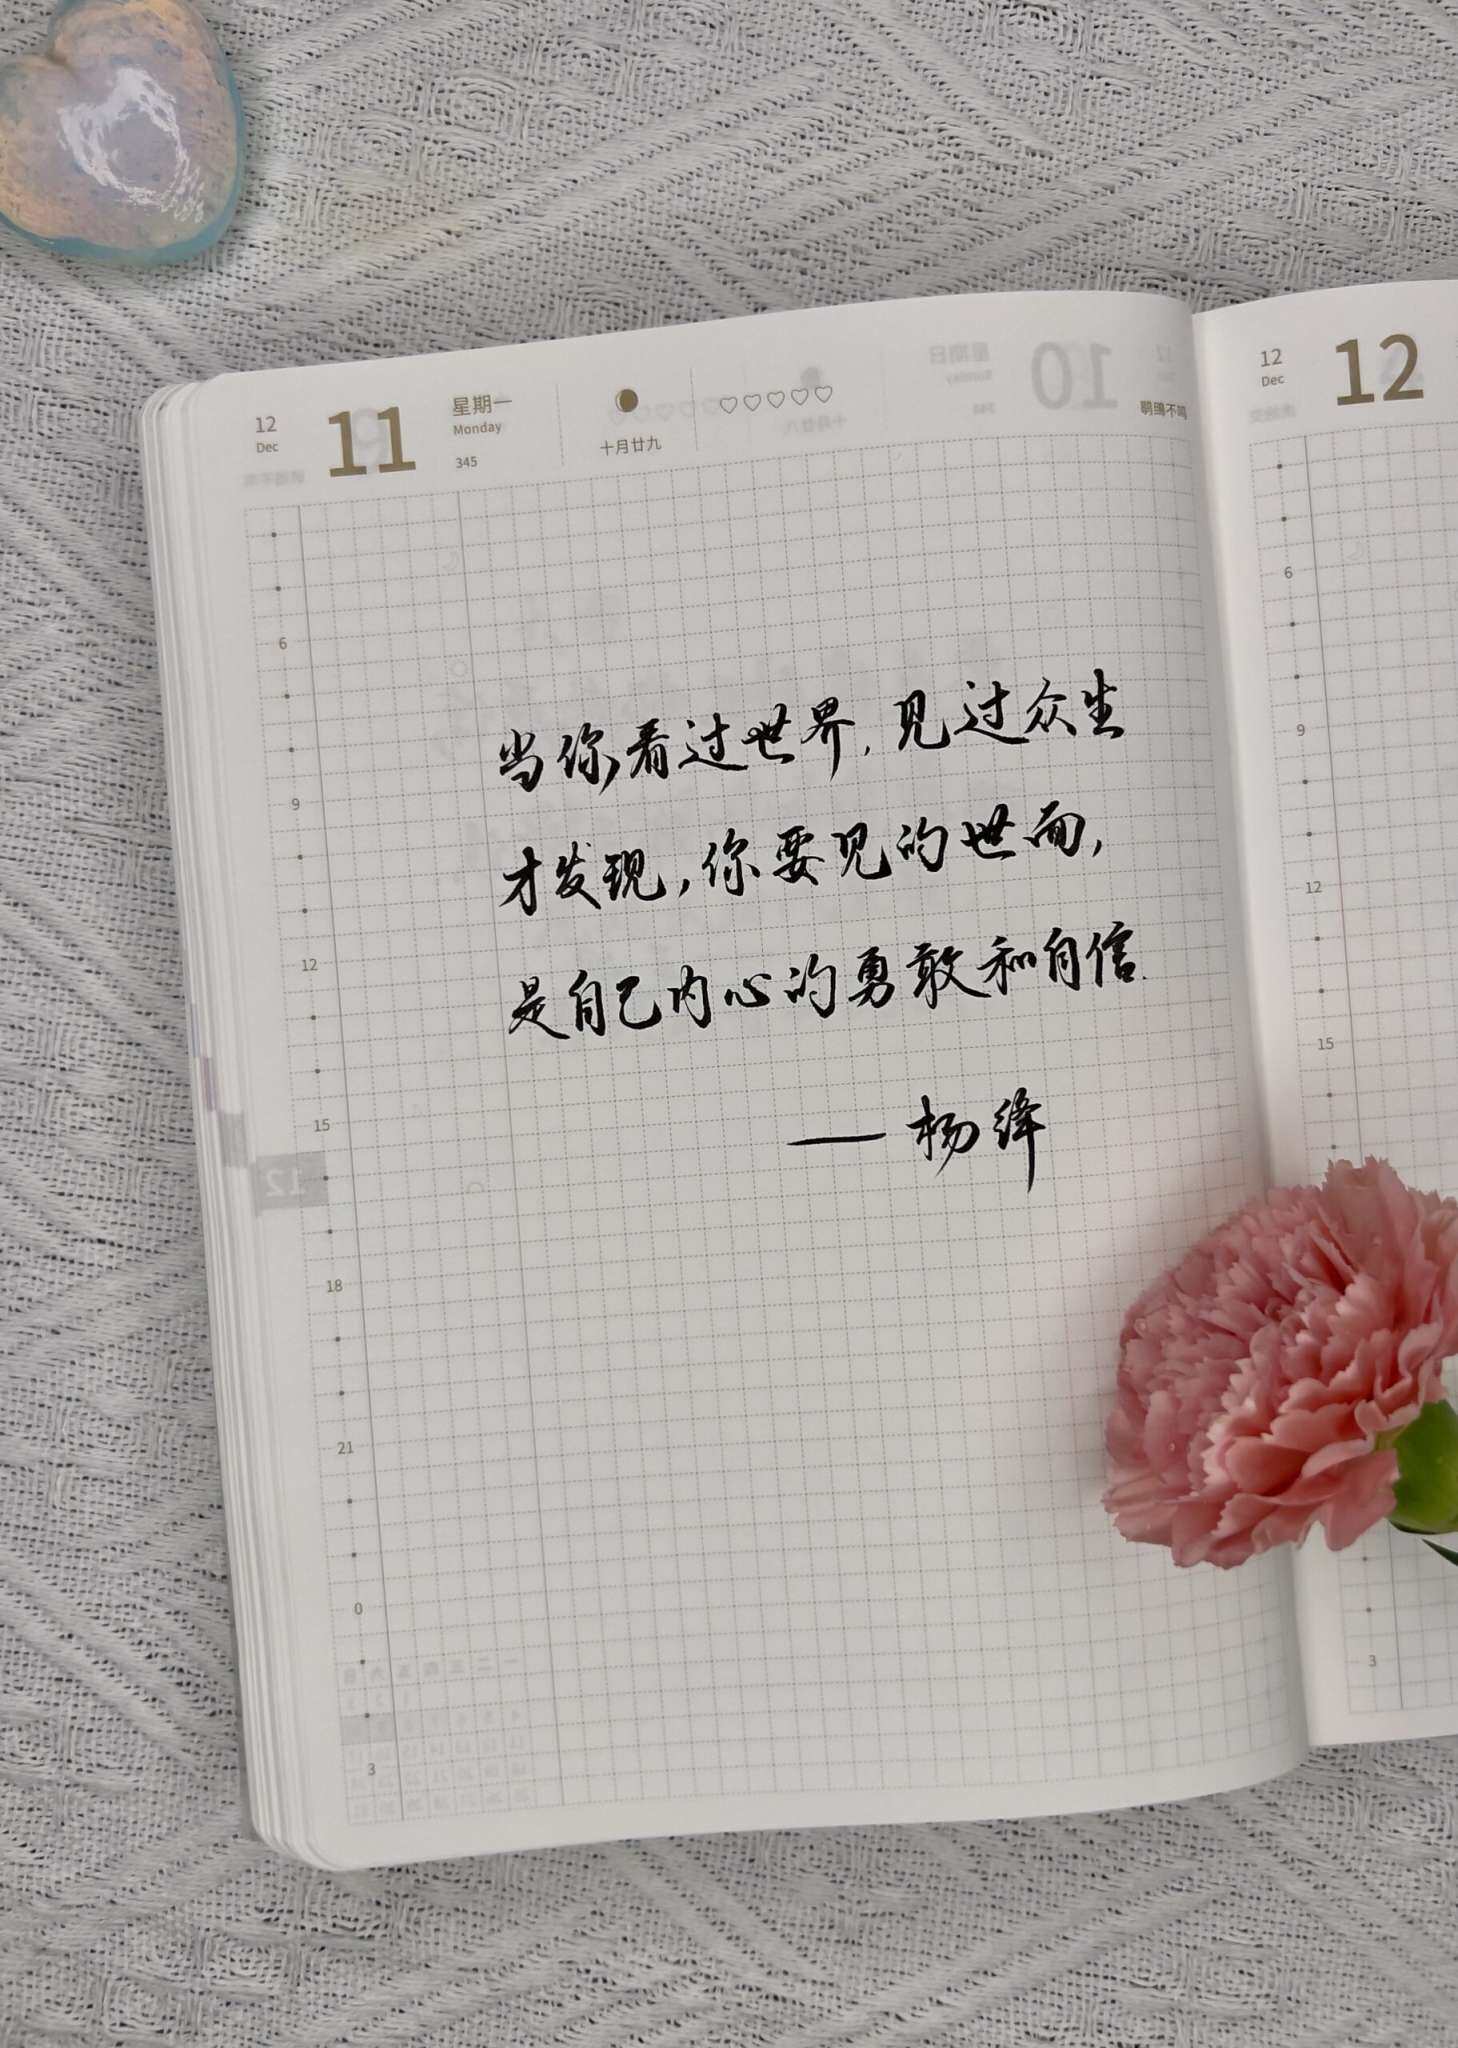 12
Dec
11
星期一
Monday
345
十月廿九
鹖鴠不鸣
当你看过世界,见过众生
才发现,你要见的世面,
是自己内心的勇敢和自信.
——杨绛
6
9
12
15
18
21
0
3
12
Dec
12
6
9
12
15
3